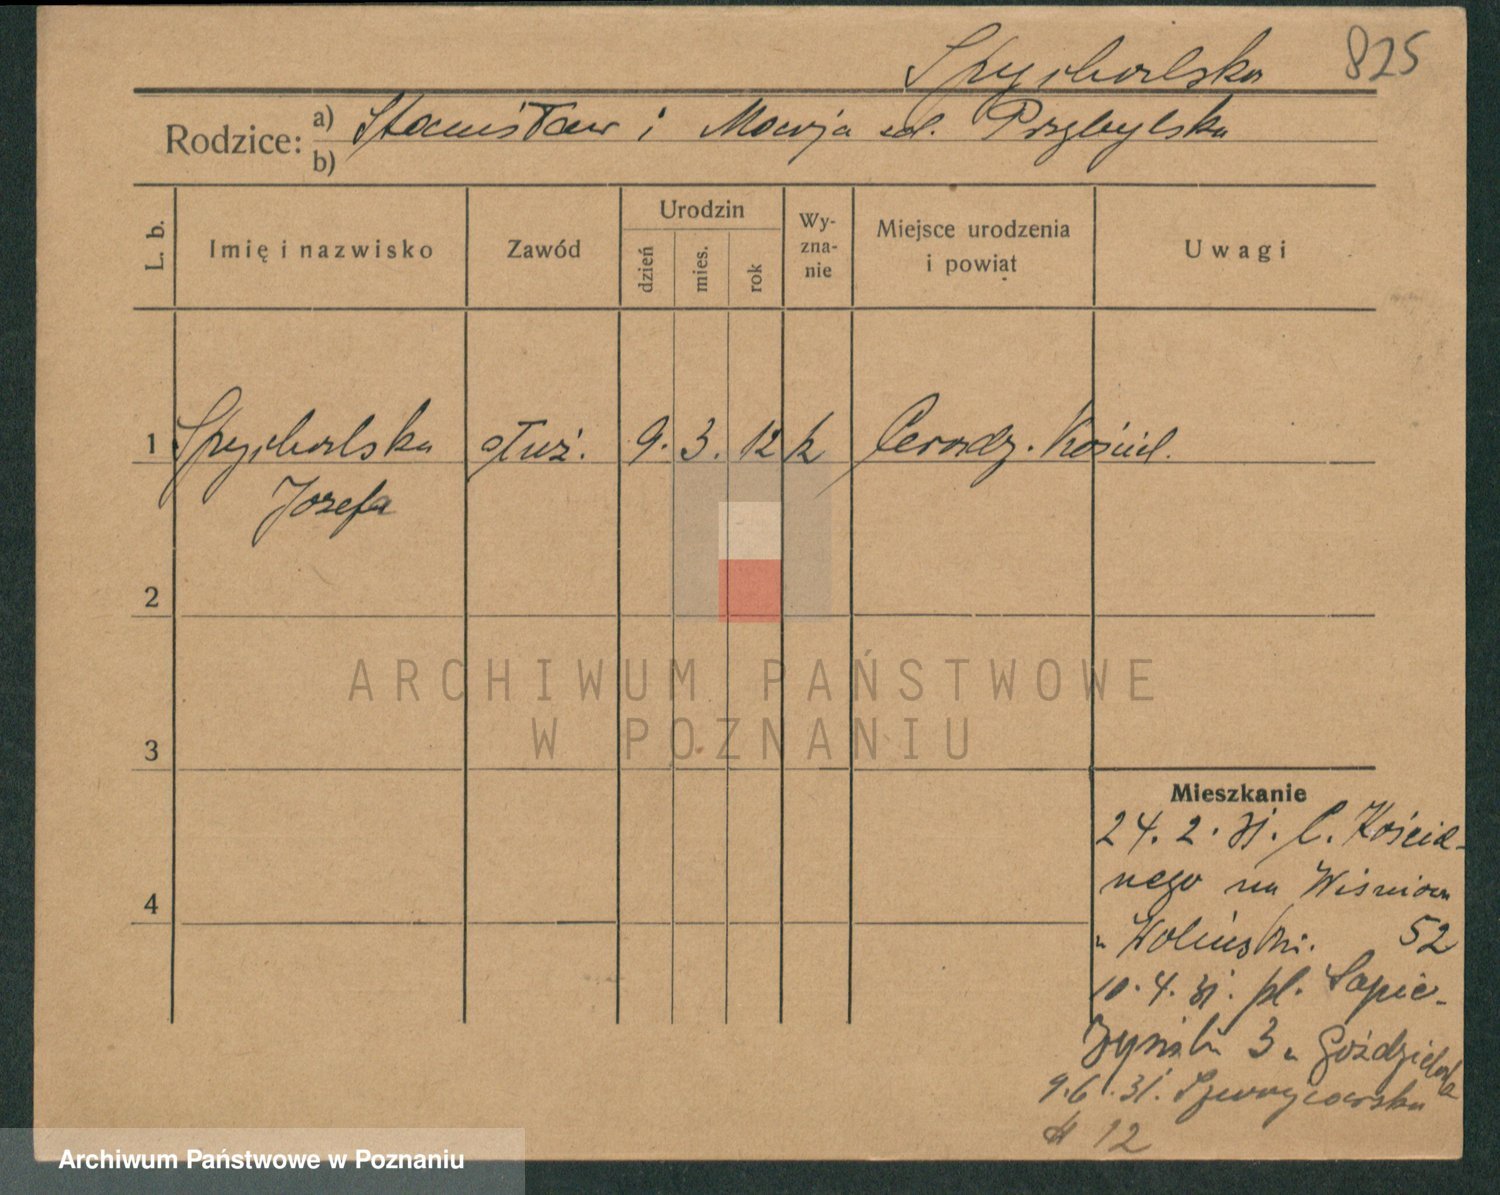 825
Spychalska
Rodzice: a) Stanisław i Marja zd. Przybylska
b)
L. b.
Imię i nazwisko
Zawód
Urodzin
dzień
mies.
rok
Wy-
zna-
nie
Miejsce urodzenia
i powiat
Uwagi
1 Spychalska służ. 9. 3. 12 k Ceradz. Kościel.
Józefa
2
3
4
Mieszkanie
24. 2. 31. C. Kościel-
nego na Wiśniowa
u Woliński. 52
10. 4. 31. pl. Sapie-
żyński 3 u
9. 6. 31.
12
ARCHIWUM PAŃSTWOWE
W POZNANIU
Archiwum Państwowe w Poznaniu